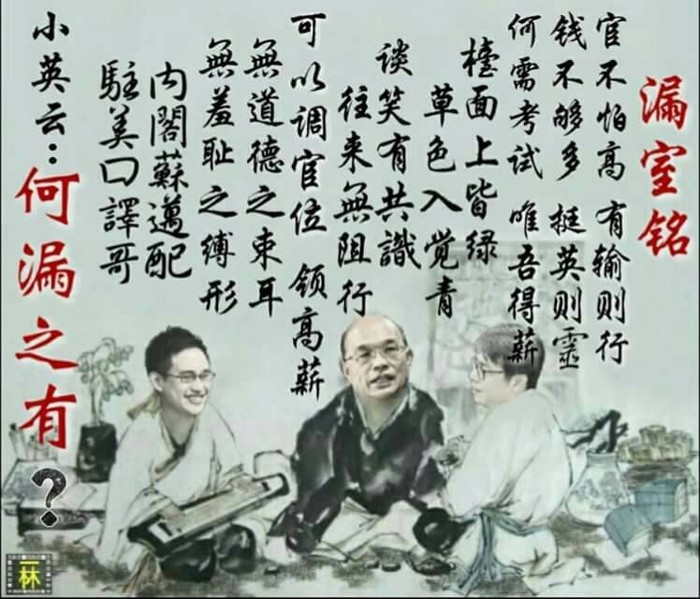 漏室铭
官不怕高 有输则行
钱不够多 挺英则靈
何需考试 唯吾得薪
檯面上皆绿
草色入觉青
谈笑有共識
往来無阻行
可以调官位 领高薪
無道德之束耳
無羞耻之缚形
内閣蘇邁配
駐美口譯哥
小英云：何漏之有？
林